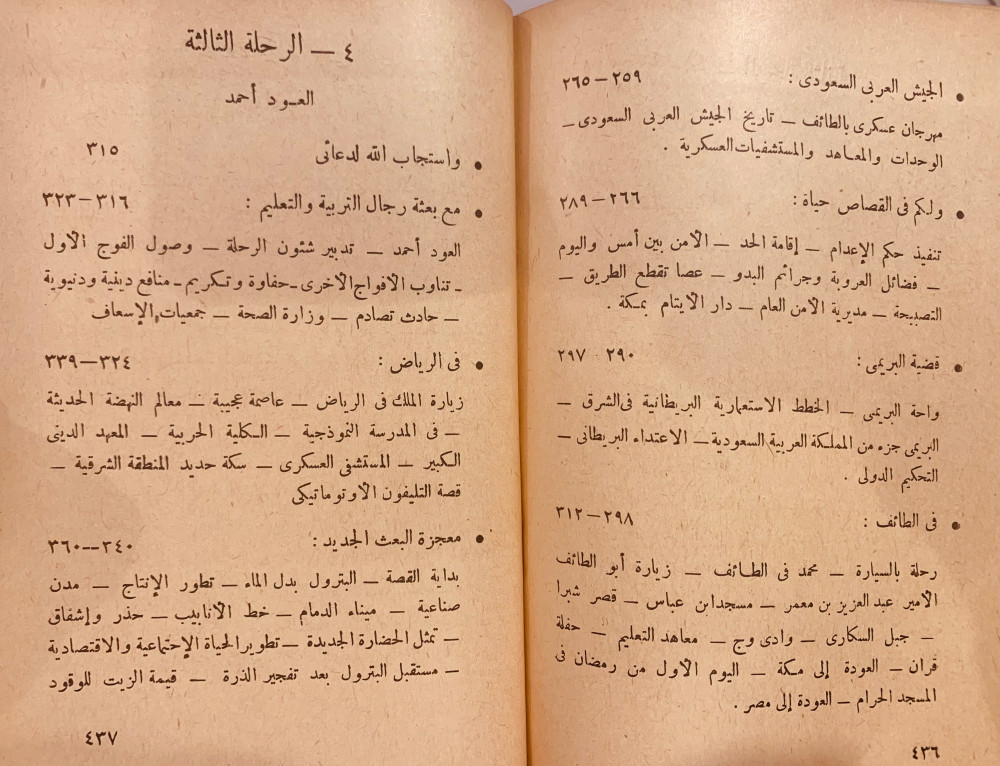 • الجيش العربى السعودى : ٢٥٩ – ٢٦٥
مهرجان عسكرى بالطائف – تاريخ الجيش العربى السعودى –
الوحدات والمعاهد والمستشفيات العسكرية .
• ولكم فى القصاص حياة : ٢٦٦ – ٢٨٩
تنفيذ حكم الإعدام – إقامة الحد – الأمن بين أمس واليوم
– فضائل العروبة وجرائم البدو – عصا تقطع الطريق –
التصبيحة – مديرية الأمن العام – دار الأيتام بمكة .
• قضية البريمى : ٢٩٠ – ٢٩٧
واحة البريمى – الخطط الاستعمارية البريطانية فى الشرق –
البريمى جزء من المملكة العربية السعودية – الاعتداء البريطانى –
التحكيم الدولى .
• فى الطائف : ٢٩٨ – ٣١٢
رحلة بالسيارة – محمد فى الطائف – زيارة أبو الطائف
الأمير عبد العزيز بن معمر – مسجد ابن عباس – قصر شبرا
– جبل السكارى – وادى وج – معاهد التعليم – حفلة
قران – العودة إلى مكة – اليوم الأول من رمضان فى
المسجد الحرام – العودة إلى مصر .
٤٣٦
٤ – الرحلة الثالثة
العود أحمد
• واستجاب الله لدعائى ٣١٥
• مع بعثة رجال التربية والتعليم : ٣١٦ – ٣٢٣
العود أحمد – تدبير شئون الرحلة – وصول الفوج الأول
– تناوب الأفواج الأخرى – حفاوة وتكريم – منافع دينية ودنيوية
– حادث تصادم – وزارة الصحة – جمعيات الإسعاف
• فى الرياض : ٣٢٤ – ٣٣٩
زيارة الملك فى الرياض – عاصمة عجيبة – معالم النهضة الحديثة
– فى المدرسة النموذجية – الكلية الحربية – المعهد الدينى
الكبير – المستشفى العسكرى – سكة حديد المنطقة الشرقية –
قصة التليفون الأوتوماتيكى
• معجزة البعث الجديد : ٣٤٠ – ٣٦٠
بداية القصة – البترول بدل الماء – تطور الإنتاج – مدن
صناعية – ميناء الدمام – خط الأنابيب – حذر وإشفاق
– تمثل الحضارة الجديدة – تطوير الحياة الإجتماعية والاقتصادية
– مستقبل البترول بعد تفجير الذرة – قيمة الزيت للوقود
٤٣٧